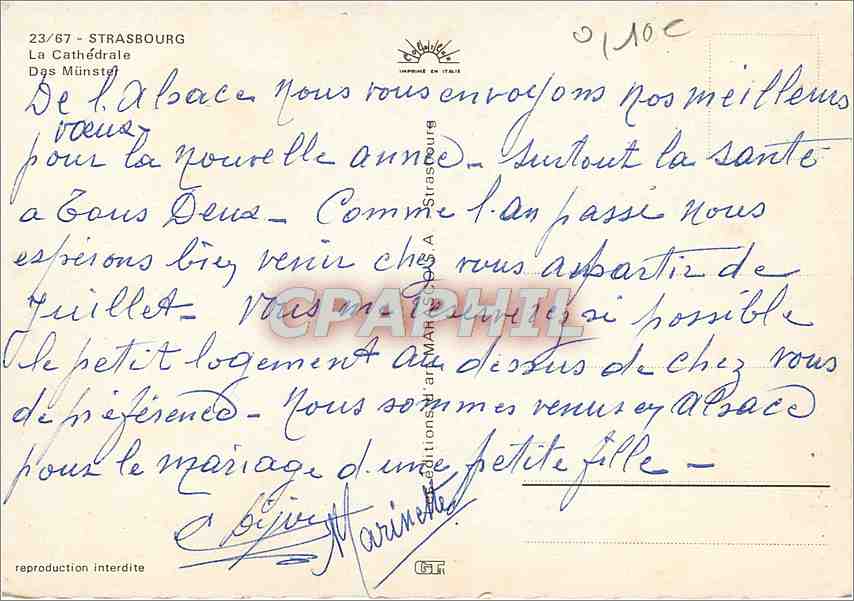 23/67 - STRASBOURG
La Cathédrale
Das Münster
IMPRIMÉ EN ITALIE
0,10€
De l'Alsace nous vous envoyons nos meilleurs
vœux
pour la nouvelle année - surtout la santé
a Tous Deux - Comme l'an passé nous
espérons bien venir chez vous a partir de
Juillet - Vous me réserverez si possible
le petit logement au dessus de chez vous
de préférence - Nous sommes venus en Alsace
pour le mariage d'une petite fille -
Marinette
Les éditions d'art MAR S.A. Strasbourg
CPAPHIL
reproduction interdite